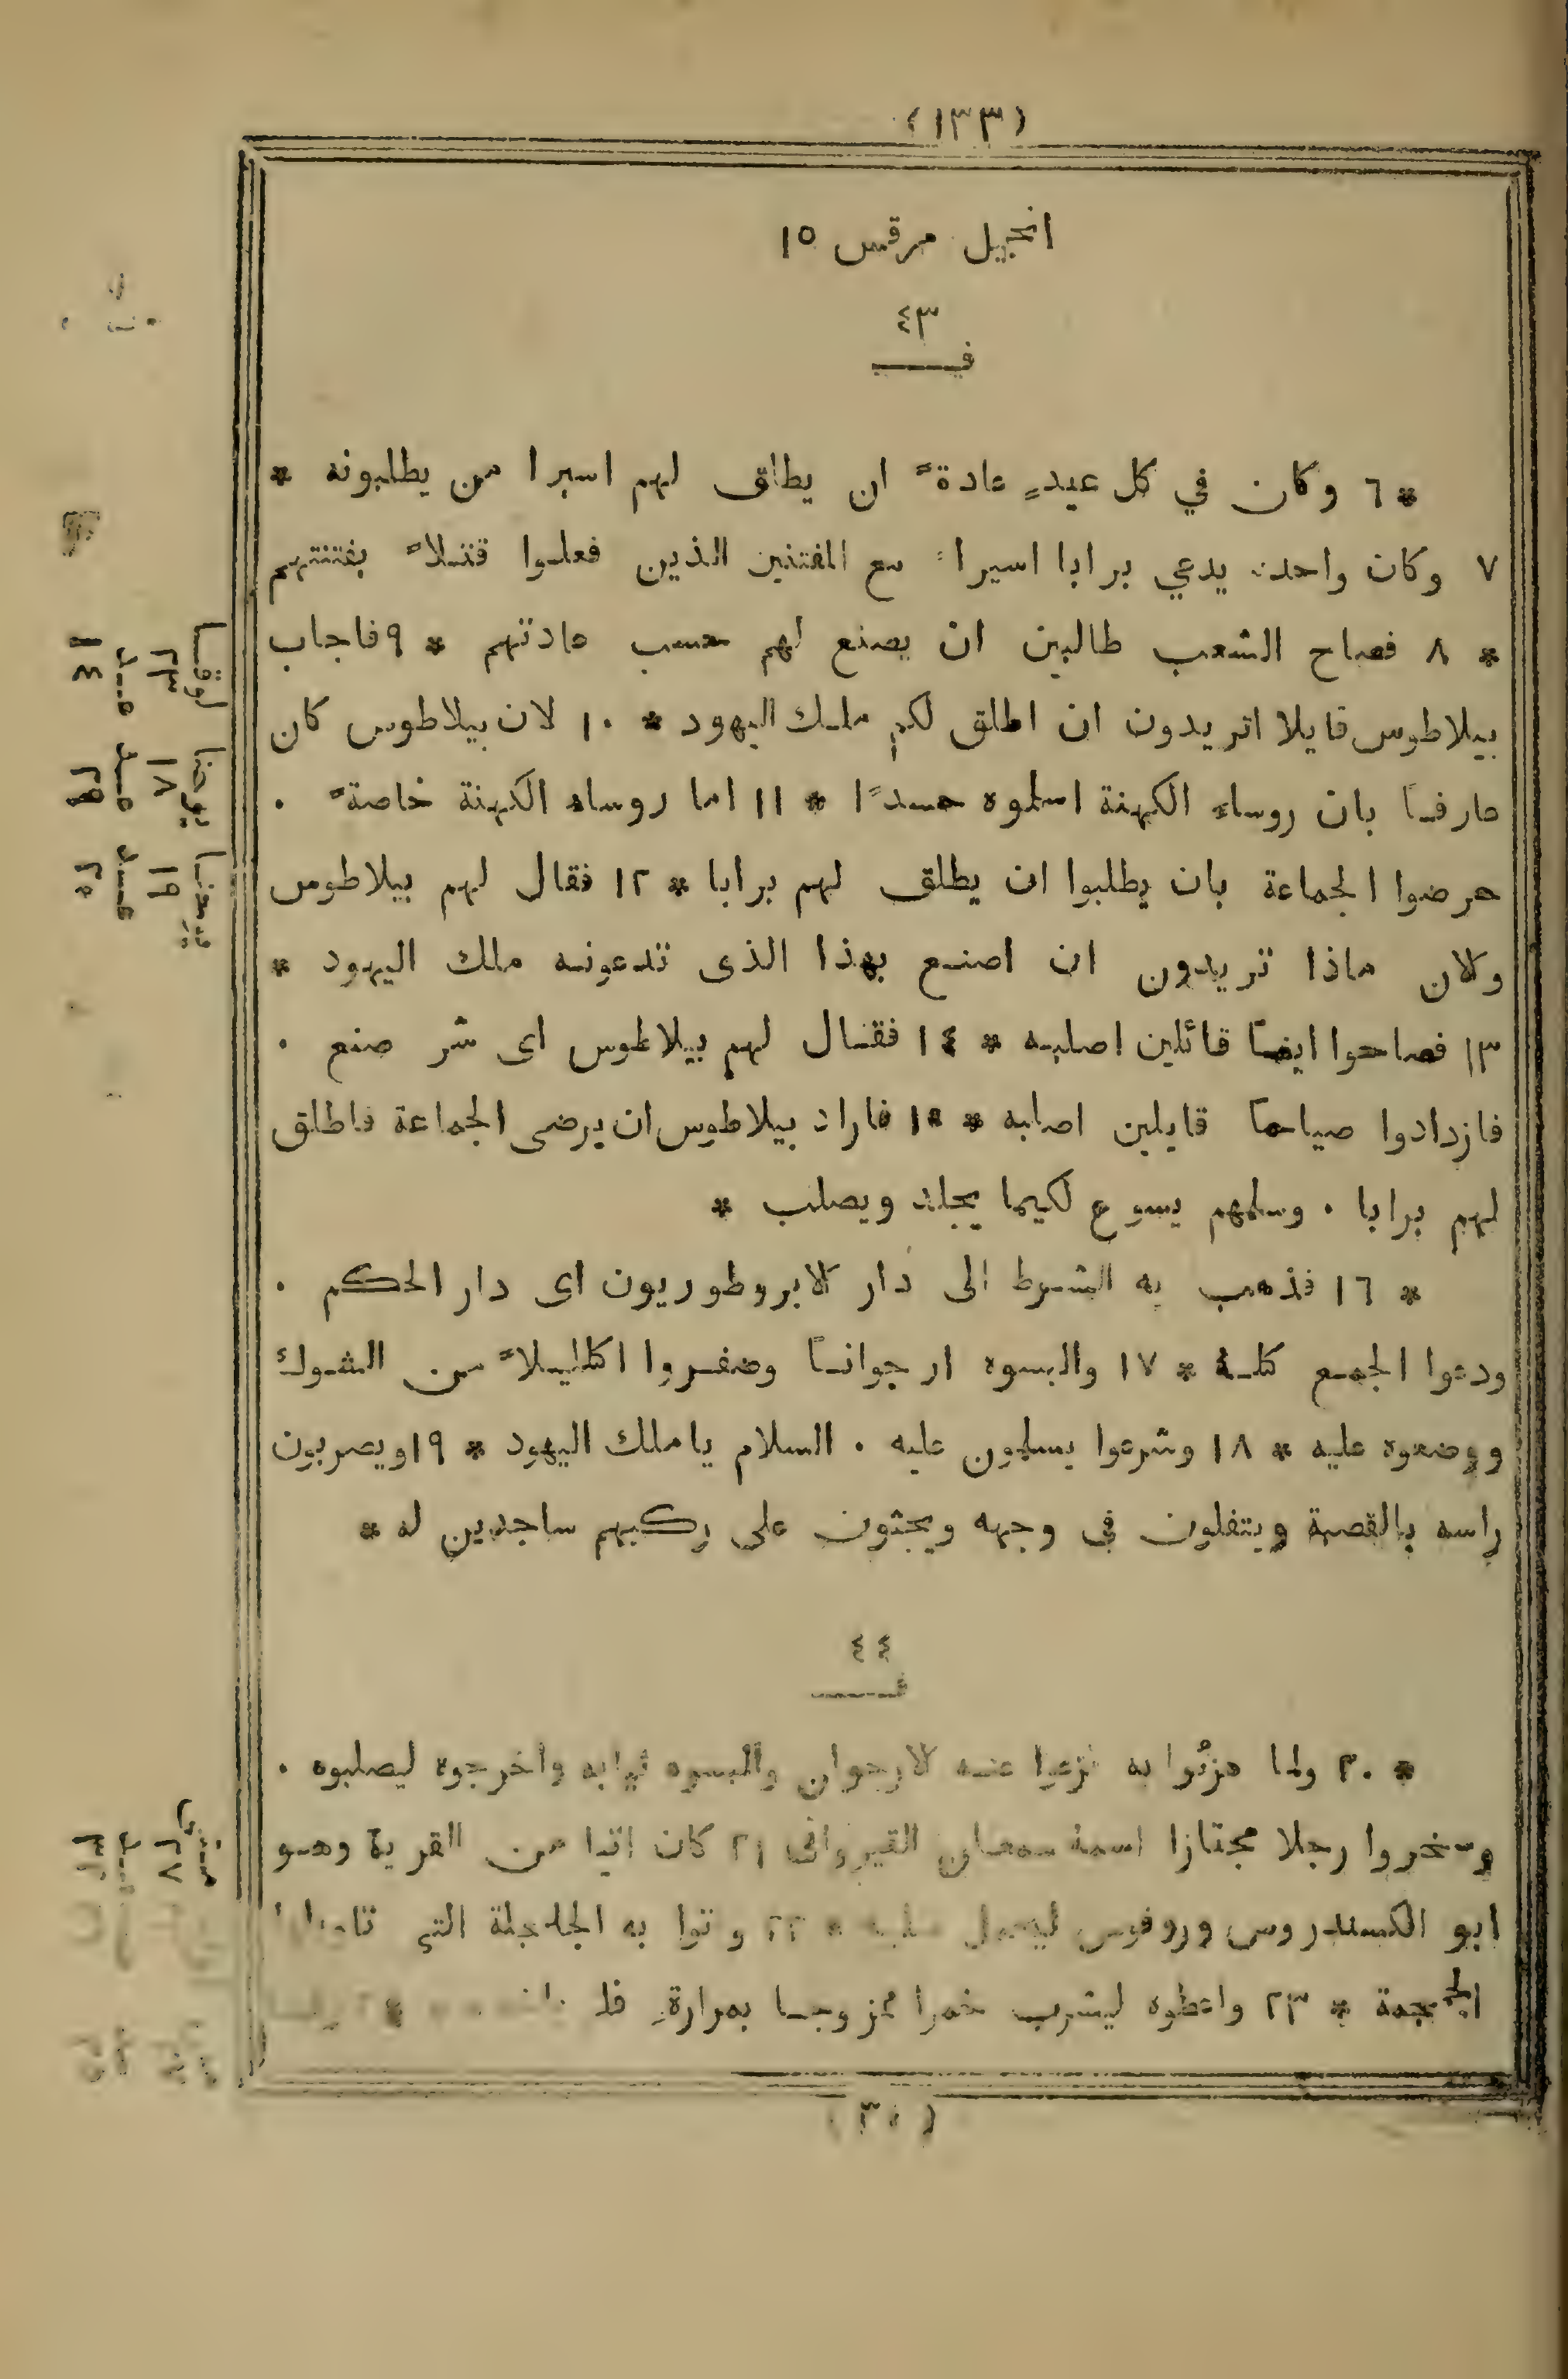 (١٣٣)
انجيل مرقس ١٥
٤٣
ف
* ٦ وكان في كل عيدٍ عادةً ان يطلق لهم اسيرا من يطلبونه *
٧ وكان واحد يدعي برابا اسيرا مع المفتنين الذين فعلوا قتلاً بفتنتهم
* ٨ فصاح الشعب طالبين ان يصنع لهم حسب عادتهم * ٩ فاجاب
بيلاطوس قايلا اتريدون ان اطلق لكم ملك اليهود * ١٠ لان بيلاطوس كان
عارفاً بان روساء الكهنة اسلموه حسداً * ١١ اما روساء الكهنة خاصةً .
حرضوا الجماعة بان يطلبوا ان يطلق لهم برابا * ١٢ فقال لهم بيلاطوس
ولان ماذا تريدون ان اصنع بهذا الذى تدعونه ملك اليهود *
١٣ فصاحوا ايضاً قائلين اصلبه * ١٤ فقال لهم بيلاطوس اى شر صنع .
فازدادوا صياحاً قايلين اصلبه * ١٥ فاراد بيلاطوس ان يرضى الجماعة فاطلق
لهم برابا . وسلمهم يسوع لكيما يجلد ويصلب *
* ١٦ فذهب به الشرط الى دار لابروطوريون اى دار الحكم .
ودعوا الجمع كله * ١٧ والبسوه ارجواناً وضفروا اكليلاً من الشوك
ووضعوه عليه * ١٨ وشرعوا يسلمون عليه . السلام يا ملك اليهود * ١٩ ويضربون
راسه بالقصبة ويتفلون فى وجهه ويجثون على ركبهم ساجدين له *
٤٤
ف
* ٢٠ ولما هزئوا به نزعوا عنه لارجوان والبسوه ثيابه واخرجوه ليصلبوه .
وسخروا رجلا مجتازا اسمه سمعان القيروانى ٢١ كان اتيا من القرية وهو
ابو الكسندروس وروفوس ليحمل صلبه * ٢٢ واتوا به الجلجلة التي
الجمجمة * ٢٣ واعطوه ليشرب خمرا ممزوجا بمرارةٍ
لوقا ٢٣ عدد ١٤
يوحنا ١٨ عدد ٢٩
يوحنا ١٩ عدد ٢٥
متى ٢٧ عدد ٣٢